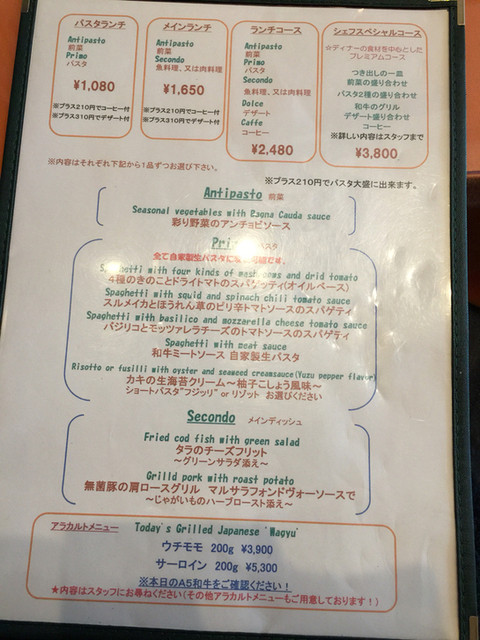 パスタランチ
Antipasto
前菜
Primo
パスタ
¥1,080
※プラス210円でコーヒー付
※プラス310円でデザート付
メインランチ
Antipasto
前菜
Secondo
魚料理、又は肉料理
¥1,650
※プラス210円でコーヒー付
※プラス310円でデザート付
ランチコース
Antipasto
前菜
Primo
パスタ
Secondo
魚料理、又は肉料理
Dolce
デザート
Caffe
コーヒー
¥2,480
シェフスペシャルコース
☆ディナーの食材を中心とした
プレミアムコース
つき出しの一皿
前菜の盛り合わせ
パスタ2種の盛り合わせ
和牛のグリル
デザート盛り合わせ
コーヒー
※詳しい内容はスタッフまで
¥3,800
※内容はそれぞれ下記から1品ずつお選び下さい。
※プラス210円でパスタ大盛に出来ます。
Antipasto 前菜
Seasonal vegetables with Bagna Cauda sauce
彩り野菜のアンチョビソース
パスタ
全て自家製生パスタに
Spaghetti with four kinds of mushrooms and drid tomato
4種のきのことドライトマトのスパゲッティ(オイルベース)
Spaghetti with squid and spinach chili tomato sauce
スルメイカとほうれん草のピリ辛トマトソースのスパゲティ
Spaghetti with basilico and mozzarella cheese tomato sauce
バジリコとモッツァレラチーズのトマトソースのスパゲティ
Spaghetti with meat sauce
和牛ミートソース 自家製生パスタ
Risotto or fusilli with oyster and seaweed creamsauce(Yuzu pepper flavor)
カキの生海苔クリーム～柚子こしょう風味～
ショートパスタ"フジッリ" or リゾット お選びください
Secondo メインディッシュ
Fried cod fish with green salad
タラのチーズフリット
～グリーンサラダ添え～
Grilld pork with roast potato
無菌豚の肩ロースグリル マルサラフォンドヴォーソースで
～じゃがいものハーブロースト添え～
アラカルトメニュー Today's Grilled Japanese 'Wagyu'
ウチモモ 200g ¥3,900
サーロイン 200g ¥5,300
※本日のA5和牛をご確認ください！
★内容はスタッフにお尋ねください(その他アラカルトメニューもご用意しております！)